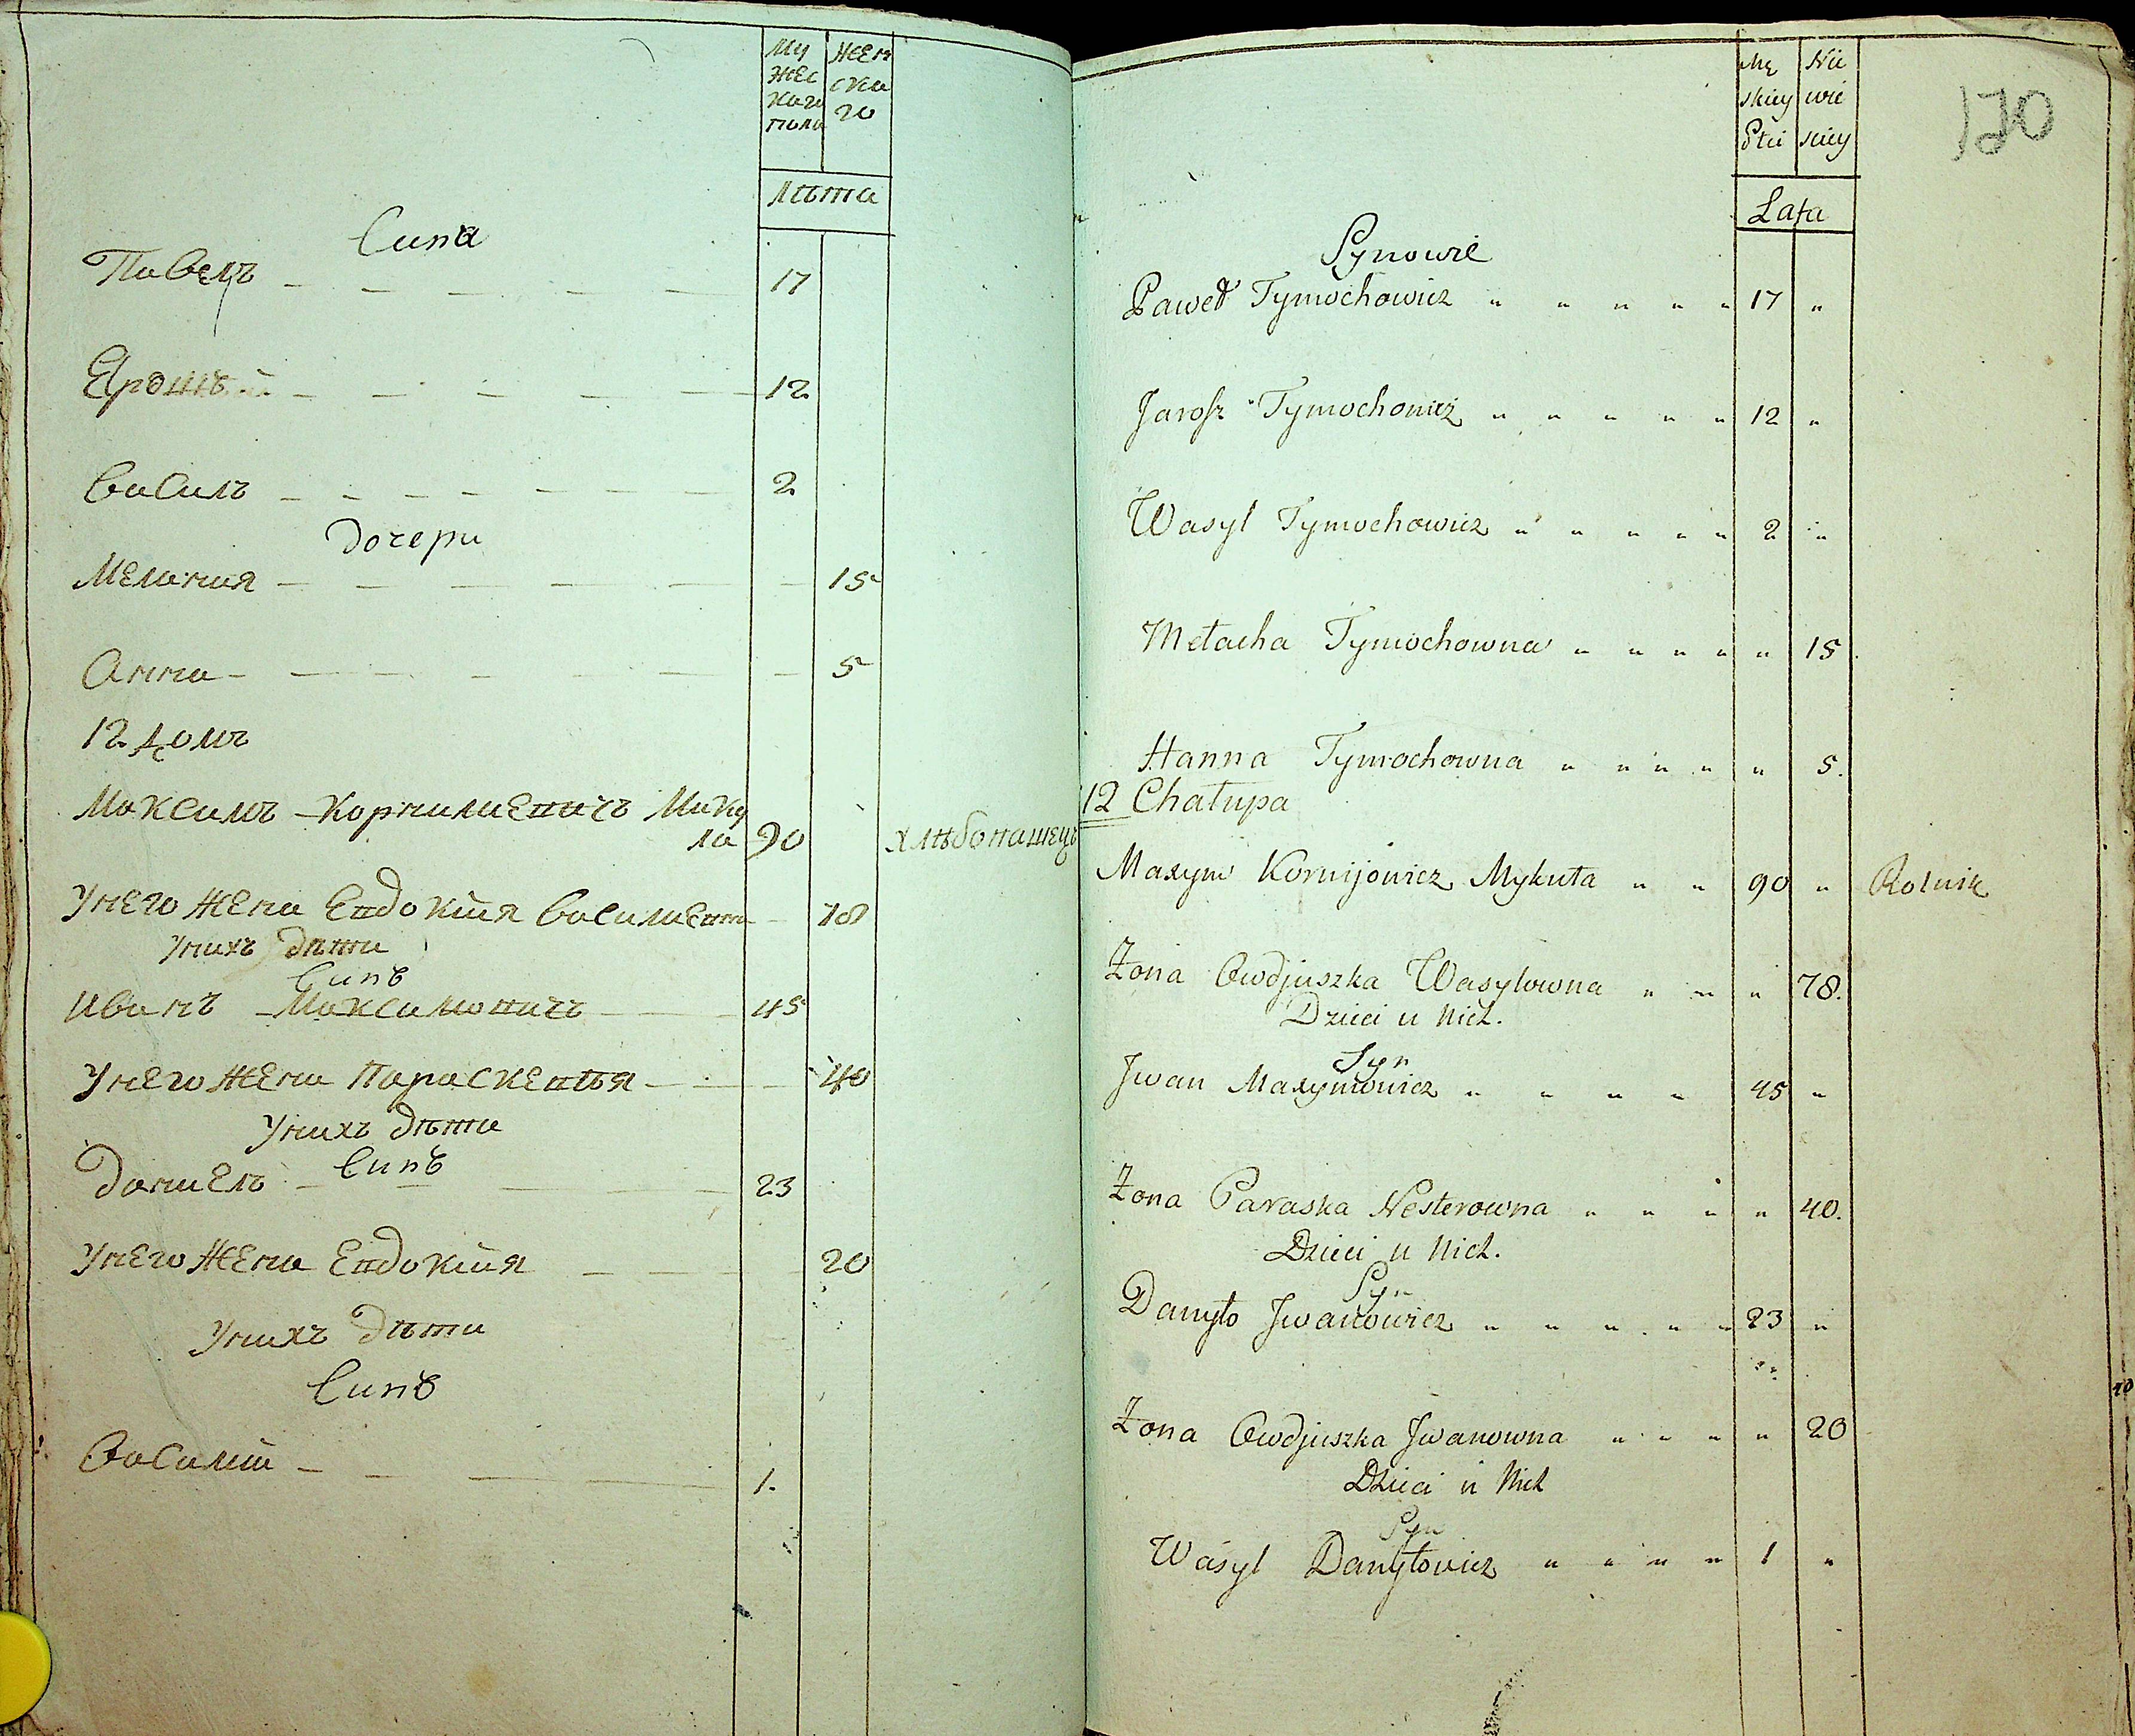 Му
жес
каго
пола
жен
ска
го
лѣта
Сина
Павелъ 17
12
Василъ 2
Дочери
Мелания 15
Анна 5
12 домъ
Максимъ Корнилиевичъ Мику
ла 90 хлѣбопашецъ
У него жена Евдокия Василиевна 78
У нихъ дѣти
Синъ
Иванъ Максимовичъ 45
У него жена Параскевья 40
У нихъ дѣти
Синъ
Даниелъ 23
У него жена Евдокия 20
У нихъ дѣти
Синъ
Василий 1.
170
Mę
skiey
Płci
Nie
wie
sciey
Lata
Synowie
Paweł Tymochowicz " " " " " 17 "
Jarosz Tymochowicz " " " " " 12 "
Wasyl Tymochowicz " " " " " 2 "
Mełacha Tymochowna " " " " " 15
Hanna Tymochowna " " " " " 5.
12 Chałupa
Maxym Kornijowicz Mykuła " " 90 " Rolnik
Żona Owdjuszka Wasylowna " " " 78.
Dzieci u Nich.
Syn
Jwan Maxymowicz " " " " 45 "
Żona Paraska Nesterowna " " " " 40.
Dzieci u Nich.
Syn
Danyło Jwanowicz " " " " " 23 "
Żona Owdjuszka Jwanowna " " " " 20
Dzieci u Nich
Syn
Wasyl Danyłowicz " " " " 1 "